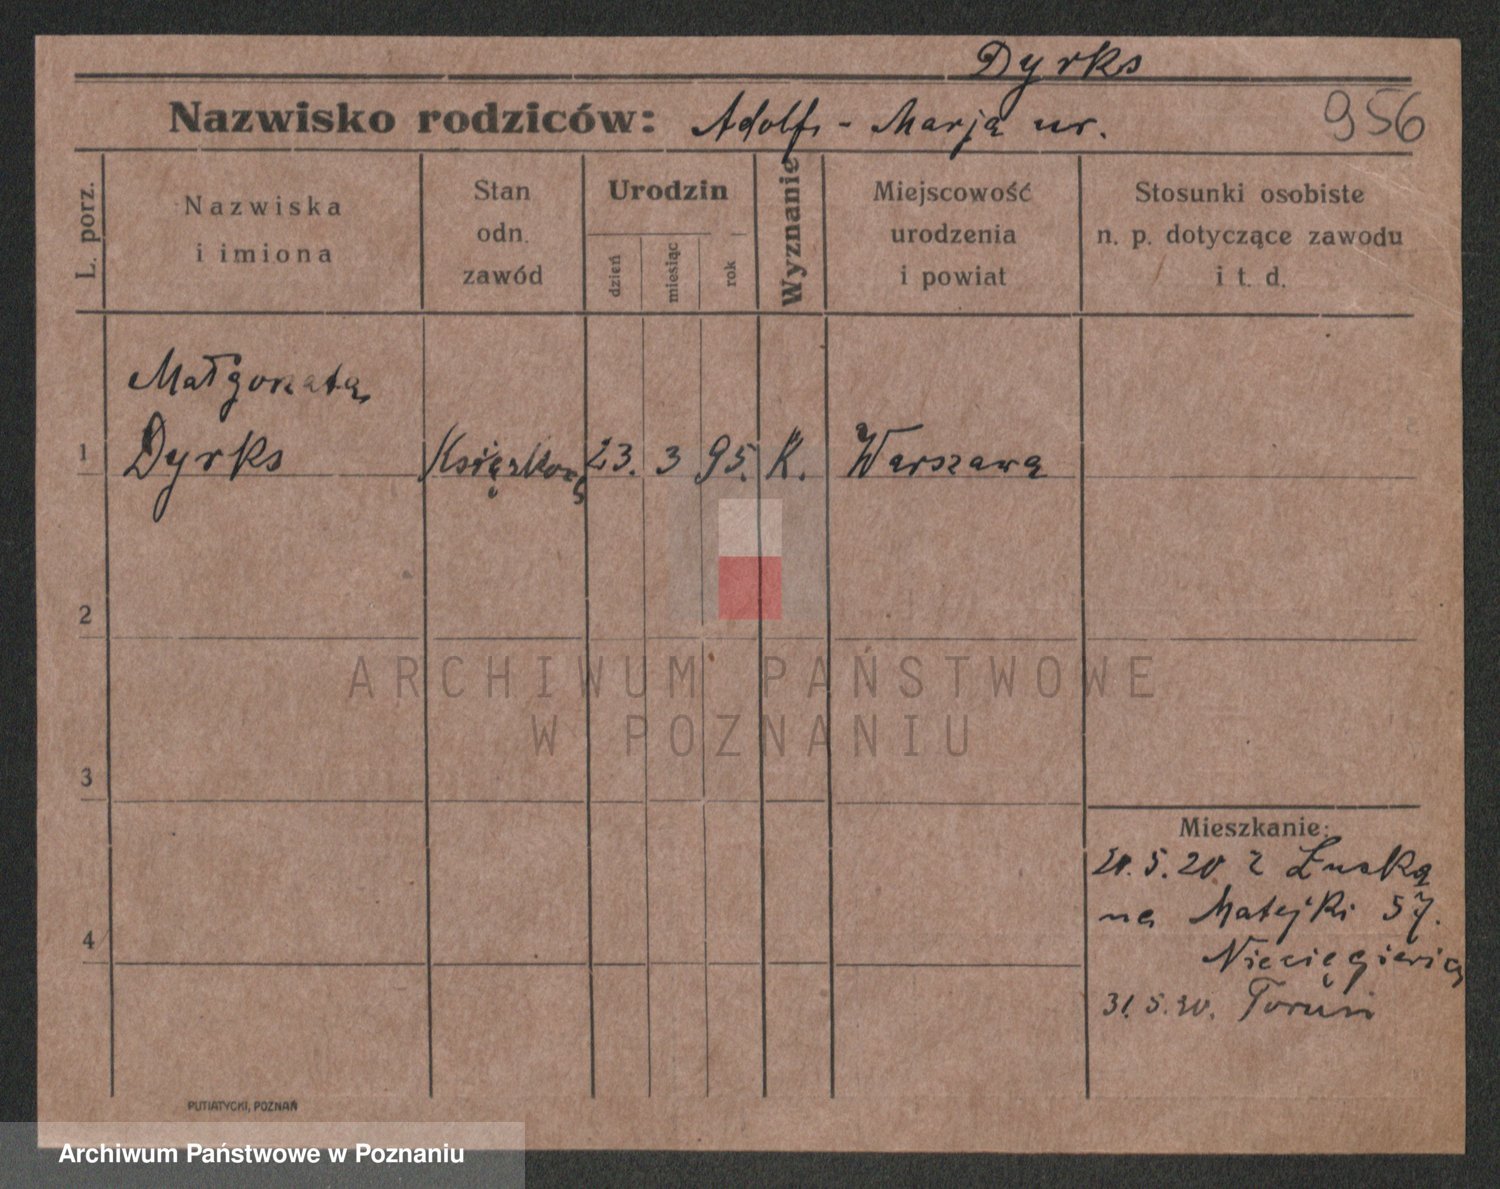 Dyrks
Nazwisko rodziców: Adolf - Marja ur.
956
L. porz.
Nazwiska
i imiona
Stan
odn.
zawód
Urodzin
dzień
miesiąc
rok
Wyznanie
Miejscowość
urodzenia
i powiat
Stosunki osobiste
n. p. dotyczące zawodu
i t. d.
Małgorzata
1 Dyrks 23. 3 95. K. Warszawa
2
ARCHIWUM PAŃSTWOWE
W POZNANIU
3
Mieszkanie:
5.20 z
na Matejki 57.
4
31.5.20. Toruń
PUTIATYCKI, POZNAŃ
Archiwum Państwowe w Poznaniu